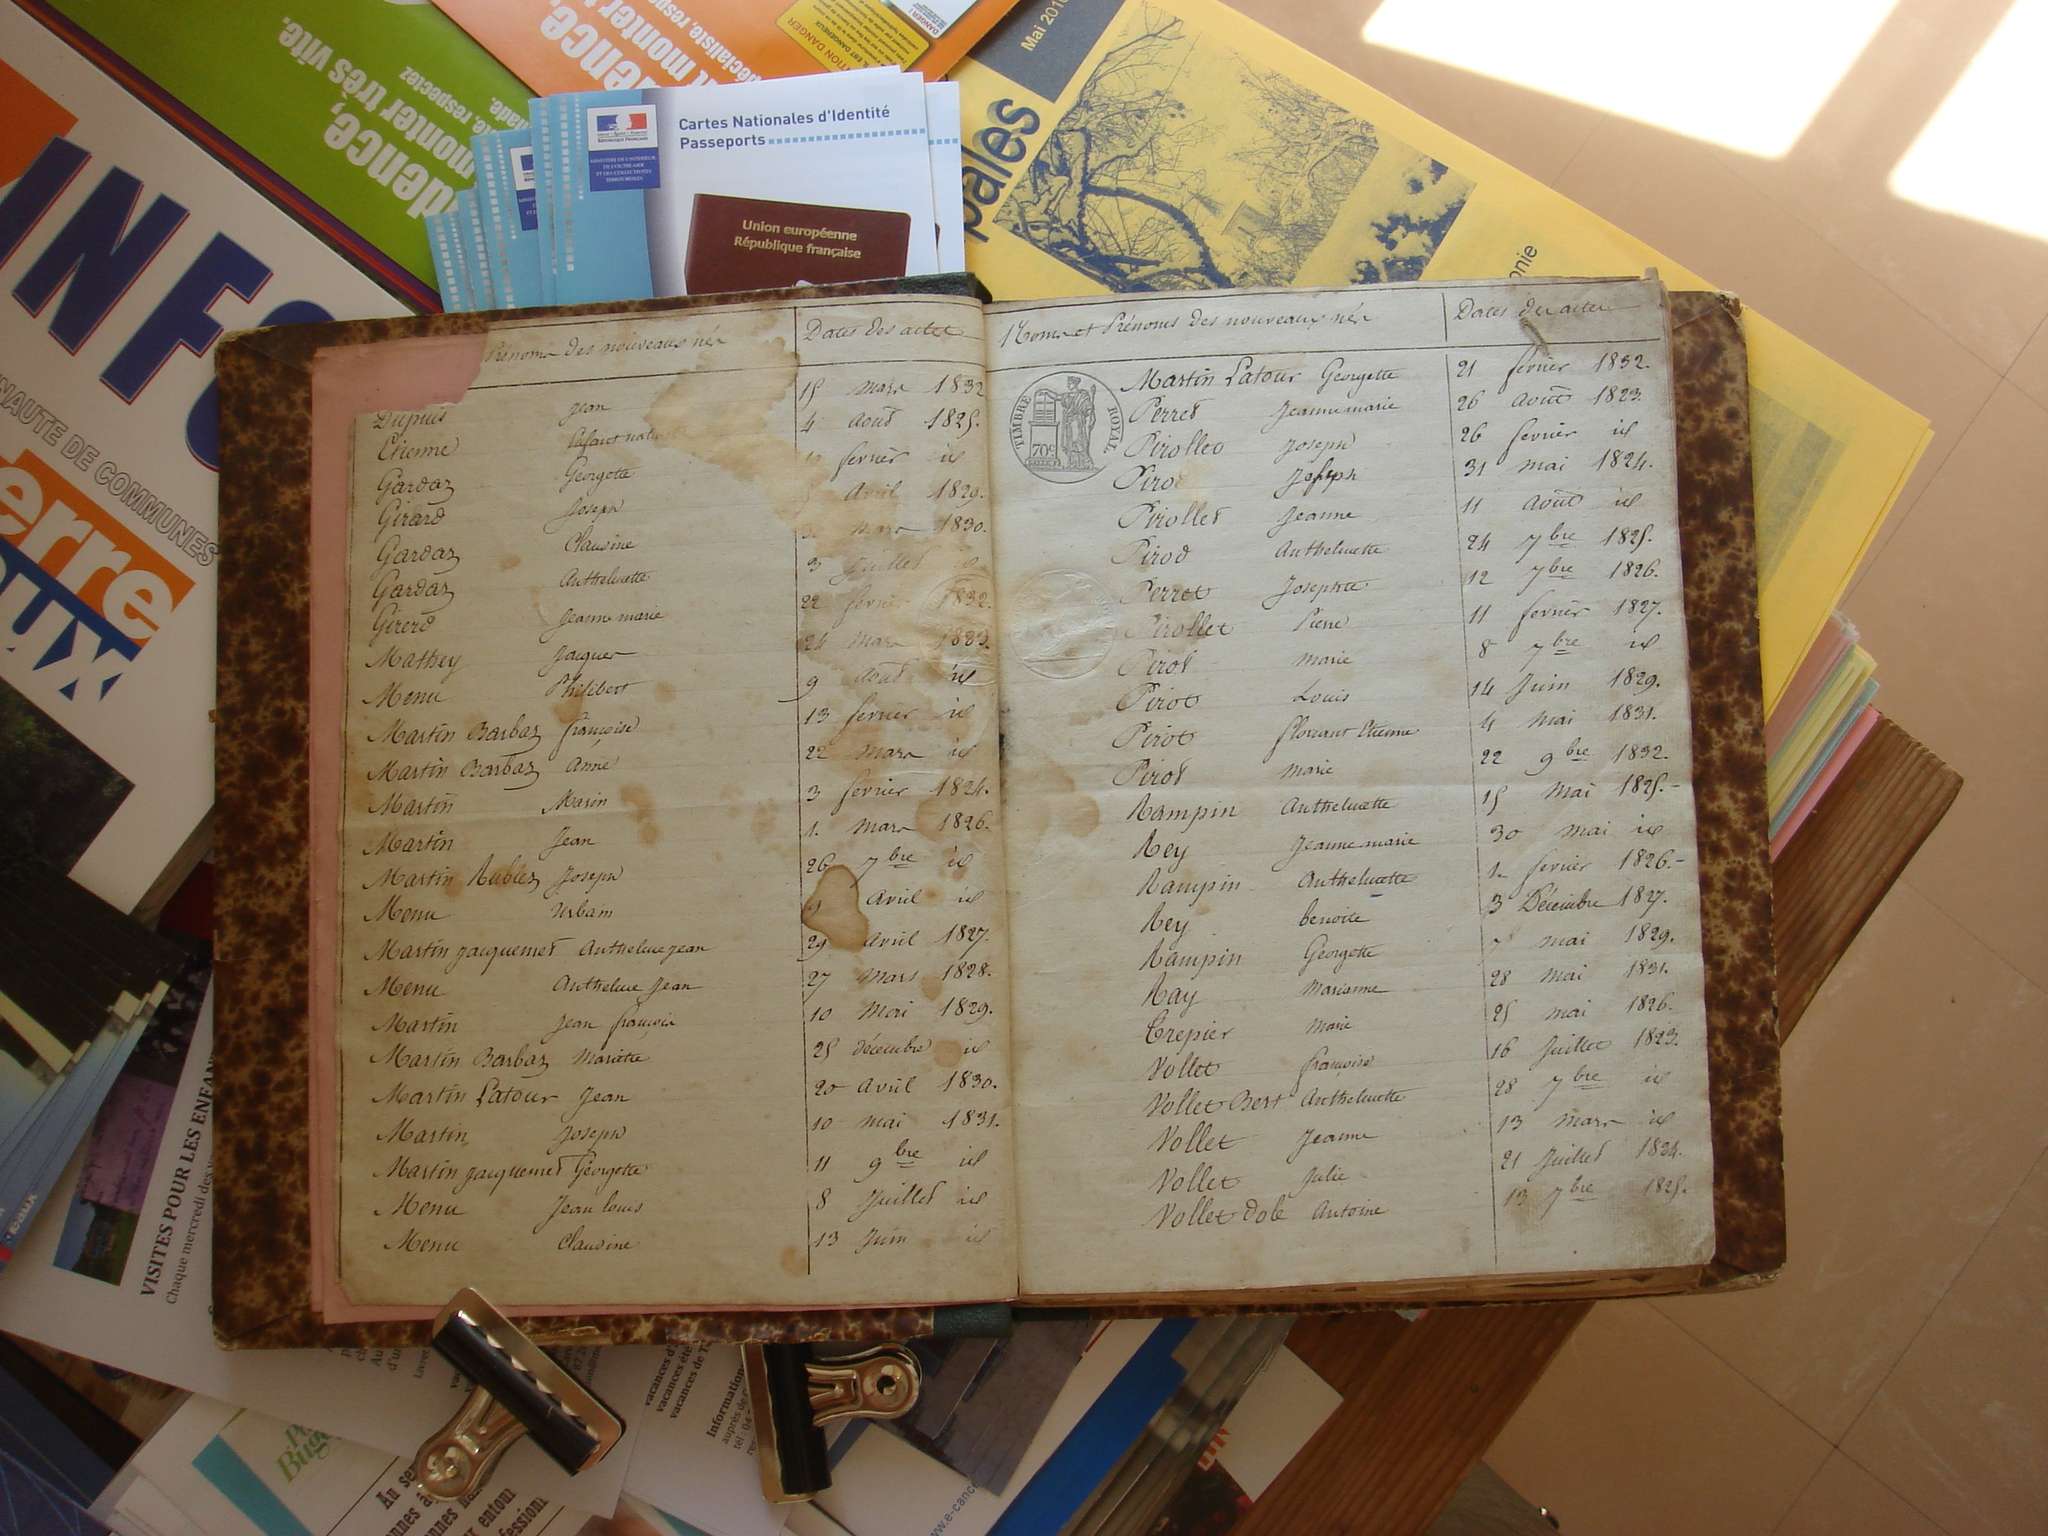 INFO
NAUTE DE COMMUNES
erre
dence,
monter très vite.
ience,
Mai 2010
pales
onie
Cartes Nationales d'Identité
Passeports
Union européenne
République française
Prénoms des nouveaux nés Dates des actes
Dupuis Jean 15 mars 1832
Etienne Enfant 4 Août 1825.
Gardaz Georgette fevrier id
Girard Joseph Avril 1829.
Gardaz Claudine mars 1830.
Gardaz Anthelmette 3 Juillet id
Girerd Jeanne marie 22 fevrier 1832.
Mathey Jacques 24 mars 1823.
Menu Philibert 9 Août id
Martin Barbaz françoise 13 fevrier id
Martin Barbaz Anne 22 mars id
Martin Marin 3 fevrier 1824.
Martin Jean 1. mars 1826.
Martin Rubiez Joseph 26 7bre id
Menu Urbain Avril id
Martin Jacquemet Anthelme Jean 29 Avril 1827.
Menu Anthelme Jean 27 Mars 1828.
Martin Jean françois 10 Mai 1829.
Martin Barbaz Mariette 25 décembre id
Martin Latour Jean 20 Avril 1830.
Martin Joseph 10 mai 1831.
Martin Jacquemet Georgette 11 9bre id
Menu Jean louis 8 Juillet id
Menu Claudine 13 Juin id
Noms et Prénoms des nouveaux nés Dates des actes
TIMBRE ROYAL
70c
Martin Latour Georgette 21 fevrier 1832.
Perret Jeanne marie 26 Août 1823.
Pirollet Joseph 26 fevrier id
Pirot Joseph 31 mai 1824.
Pirollet Jeanne 11 Août id
Pirod Anthelmette 24 7bre 1825.
Perret Josephte 12 7bre 1826.
Pirollet Pierre 11 fevrier 1827.
Pirot Marie 8 7bre id
Pirot Louis 14 Juin 1829.
Pirot florient Etienne 4 Mai 1831.
Pirot Marie 22 9bre 1832.
Rampin Anthelmette 15 Mai 1825.-
Rey Jeanne marie 30 mai id
Rampin Anthelmette 1. fevrier 1826.-
Rey benoite 3 Décembre 1827.
Rampin Georgette mai 1829.
Ray Marianne 28 mai 1831.
Trepier Marie 25 mai 1826.
Vollet françoise 16 Juillet 1823.
Vollet Bert Anthelmette 28 7bre id
Vollet Jeanne 13 mars id
Vollet Julie 21 Juillet 1824.
Vollet Dole Antoine 13 7bre 1825.
VISITES POUR LES ENFAN
Chaque mercredi des
vacances d'
vacances été
vacances de T
Information
auprès de